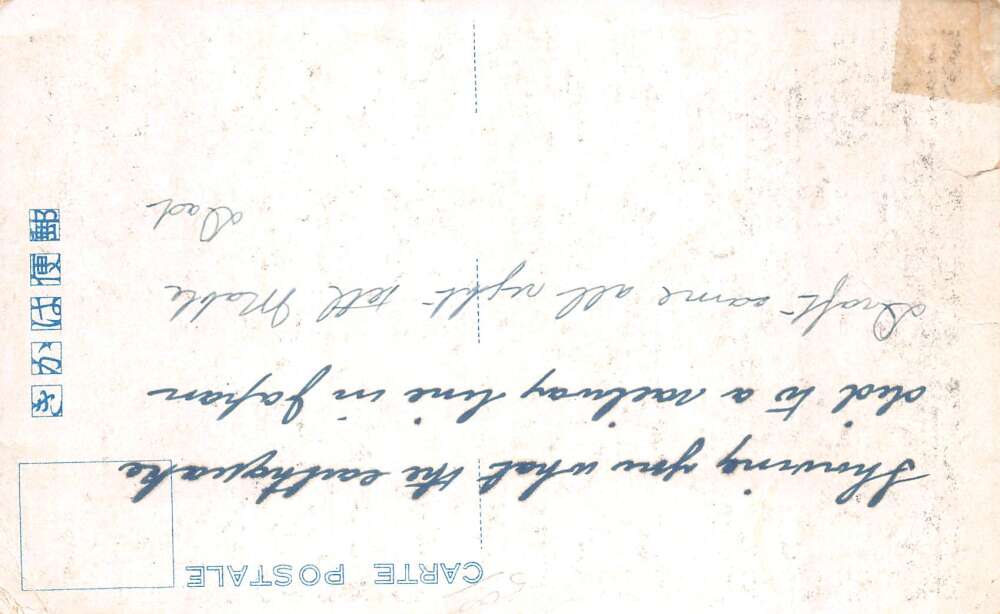 CARTE POSTALE
Showing you what the earthquake
did to a railway line in Japan
Draft came all right tell Mable
Dad
郵便はがき